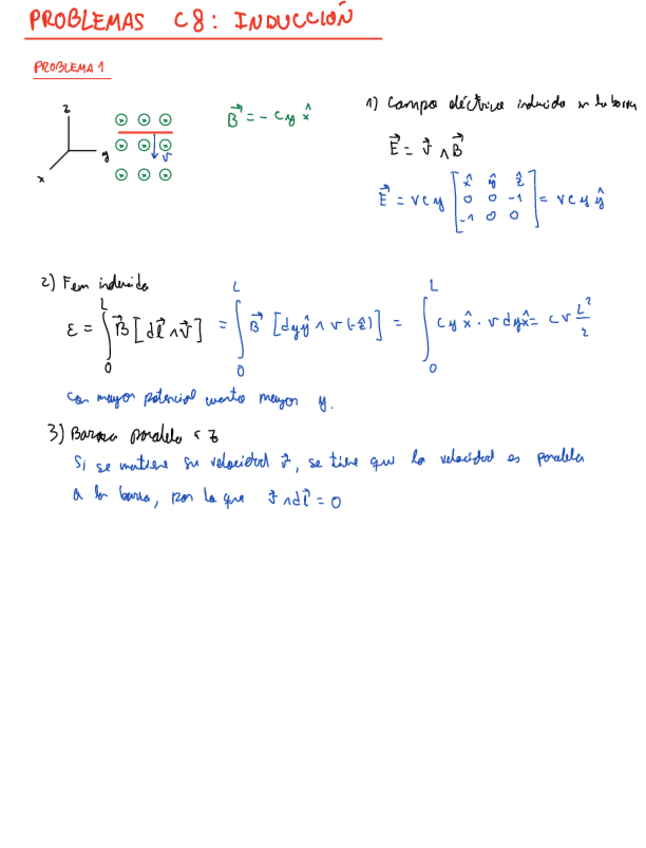 PROBLEMAS C8: INDUCCIÓN
PROBLEMA 1
z
y
x
v
B⃗ = - c y x̂
1) Campo eléctrico inducido en la barra
E⃗ = v⃗ ∧ B⃗
E⃗ = v c y [ x̂ ŷ ẑ
0 0 -1
-1 0 0 ] = v c y ŷ
2) Fem inducida
ε = ∫₀ᴸ B⃗ [dl⃗ ∧ v⃗] = ∫₀ᴸ B⃗ [dy ŷ ∧ v (-ẑ)] = ∫₀ᴸ c y x̂ · v dy x̂ = c v L²/2
con mayor potencial cuanto mayor y.
3) Barra paralela a z
Si se mantiene su velocidad v⃗, se tiene que la velocidad es paralela
a la barra, por lo que v⃗ ∧ dl⃗ = 0